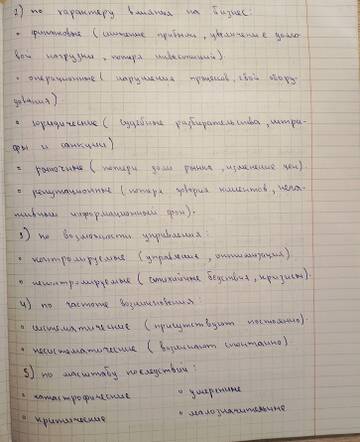 2) по характеру влияния на бизнес:
• финансовые ( снижение прибыли, увеличение долго
вой нагрузки, потеря инвестиций).
• операционные ( нарушения процессов, сбой обору-
дования)
• юридические ( судебные разбирательства, штра-
фы и санкции)
• рыночные ( потери доли рынка, изменение цен).
• репутационные ( потеря доверия клиентов, нега-
тивный информационный фон).
3) по возможности управления:
• контролируемые ( управление, оптимизация).
• неконтролируемые ( стихийные бедствия, кризисы).
4) по частоте возникновения:
• систематические ( присутствуют постоянно).
• несистематические ( возникают спонтанно)
5) по масштабу последствий:
• катастрофические • умеренные
• критические • малозначительные